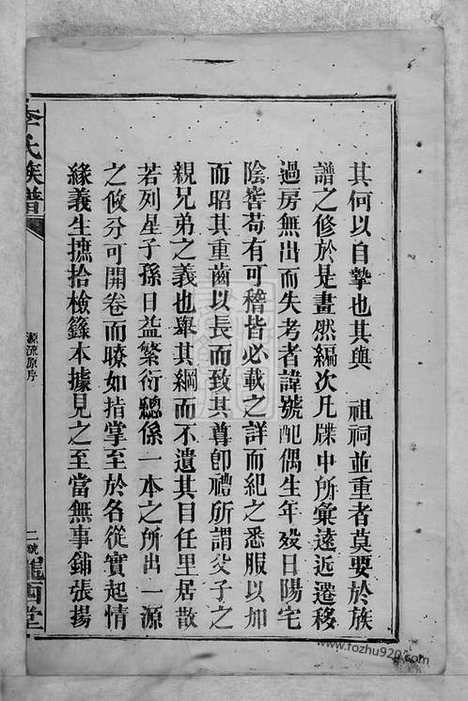 其何以自摯也其與　祖祠並重者莫要於族
譜之修於是畫然編次凡牒中所彙遠近遷移
過房無出而失考者諱號配偶生年歿日陽宅
陰砦苟有可稽皆必載之詳而紀之悉服以加
而昭其重齒以長而致其尊卽禮所謂父子之
親兄弟之義也舉其綱而不遺其目任里居散
若列星子孫日益繁衍總係一本之所出一源
之攸分可開卷而瞭如指掌至於名從實起情
緣義生摭拾檢錄本據見之至當無事鋪張揚
李氏族譜
源流原序
二號
隴西堂
www.fozhu920.com